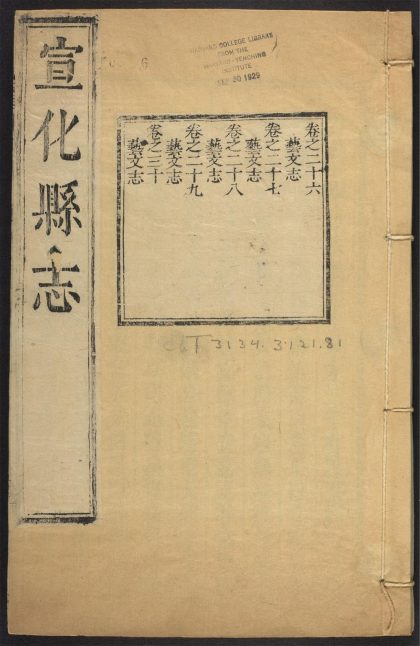 宣化縣志
卷之二十六
藝文志
卷之二十七
藝文志
卷之二十八
藝文志
卷之二十九
藝文志
卷之三十
藝文志
HARVARD COLLEGE LIBRARY
FROM THE
HARVARD-YENCHING
INSTITUTE
SEP 30 1929
T 3134.3121.81